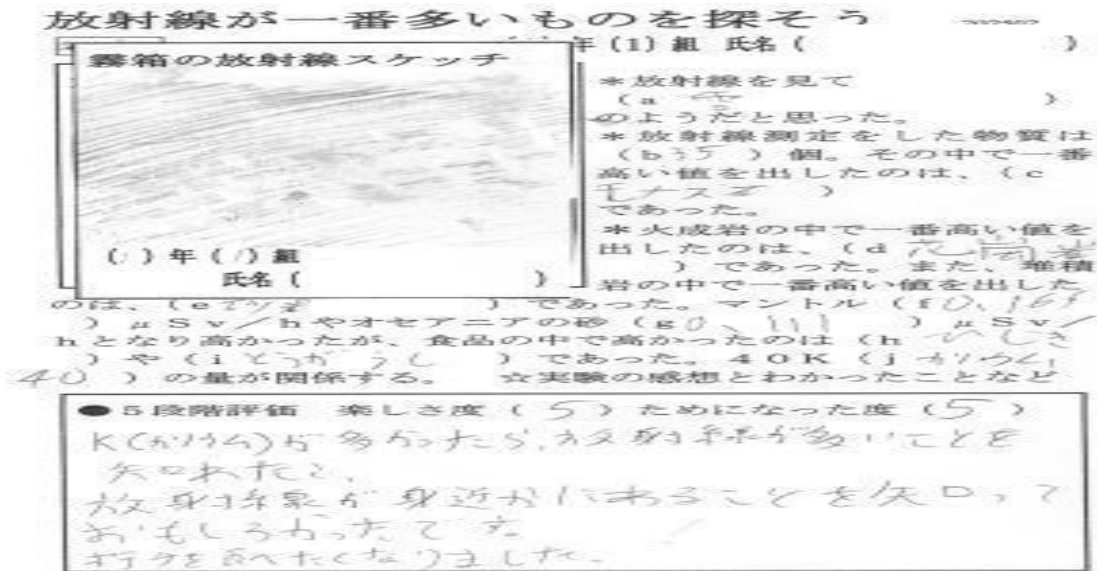 放射線が一番多いものを探そう
年(1)組 氏名( )
霧箱の放射線スケッチ
( )年( )組
氏名( )
*放射線を見て
(a 雲 )
のようだと思った。
*放射線測定をした物質は
(b 35 )個。その中で一番
高い値を出したのは、(c
モナズ )
であった。
*火成岩の中で一番高い値を
出したのは、(d 花岡岩
)であった。また、堆積
岩の中で一番高い値を出した
のは、(e )であった。マントル(f 0.165
)μSv/hやオセアニアの砂(g 0.111 )μSv/
hとなり高かったが、食品の中で高かったのは(h ひじき
)や(i とうがらし )であった。40K(j カリウム
40 )の量が関係する。 ☆実験の感想とわかったことなど
●5段階評価 楽しさ度(5)ためになった度(5)
K(カリウム)が多かったら、放射線が多いことを
知れた。
放射線が身近かにあることを知って
おもしろかったです。
たくなりました。